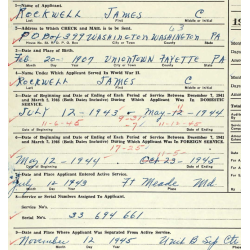 1. Name of Applicant.
ROCKWELL JAMES C
Middle or Initial
2. Address to Which CHECK and MAIL is to be Sent.
P.O. BOX 377 WASHINGTON WASHINGTON PA
City or Town County State
3. Date and Place of Birth.
FEB. 20 - 1927 UNIONTOWN FAYETTE PA
4. Name Under Which Applicant Served In World War II.
ROCKWELL JAMES C
Middle or Initial
5. Date of Beginning and Date of Ending of Each Period of Service Between December 7, 1941
and March 2, 1946 (Both Dates Inclusive) During Which Applicant Was In DOMESTIC
SERVICE.
JULY 12 - 1943 MAY - 12 - 1944
11-12-45
6. Date of Beginning and Date of Ending of Each Period of Service Between December 7, 1941
and March 2, 1946 (Both Dates Inclusive) During Which Applicant Was In FOREIGN SERVICE.
May 12 - 1944 Oct 23 - 1945
7. Date and Place Applicant Entered Active Service.
July 12 1943 Ft Meade Md
8. Service or Serial Numbers Assigned To Applicant.
33 694 661
9. Date and Place Where Applicant Was Separated From Active Service.
November 12 1945